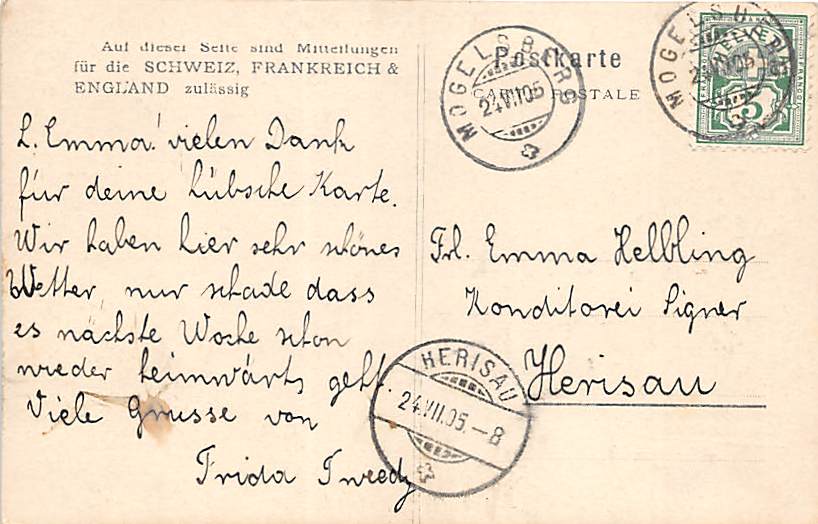 Auf dieser Seite sind Mitteilungen
für die SCHWEIZ, FRANKREICH &
ENGLAND zulässig
Postkarte
CARTE POSTALE
MOGELSBERG
24.VII.05
MOGELSBERG
24.VII.05
HELVETIA
FRANCO
5
L. Emma! vielen Dank
für deine hübsche Karte.
Wir haben hier sehr schönes
Wetter, nur schade dass
es nächste Woche schon
wieder heimwärts geht.
Viele Grusse von
Frida
Frl. Emma Helbling
Konditorei Signer
Herisau
HERISAU
24.VII.05.–8